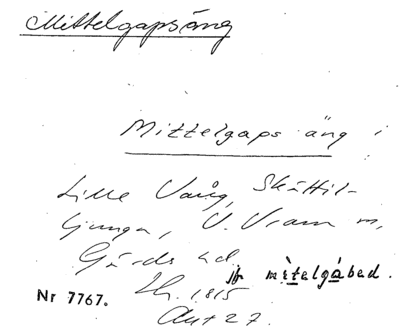 Mittelgapsäng
Mittelgaps äng i
Lille Vång, Skättil-
ljunga, V. Vram m,
Gärds hd
jfr mitelgabed.
Nr 7767.
1815
Akt 27.